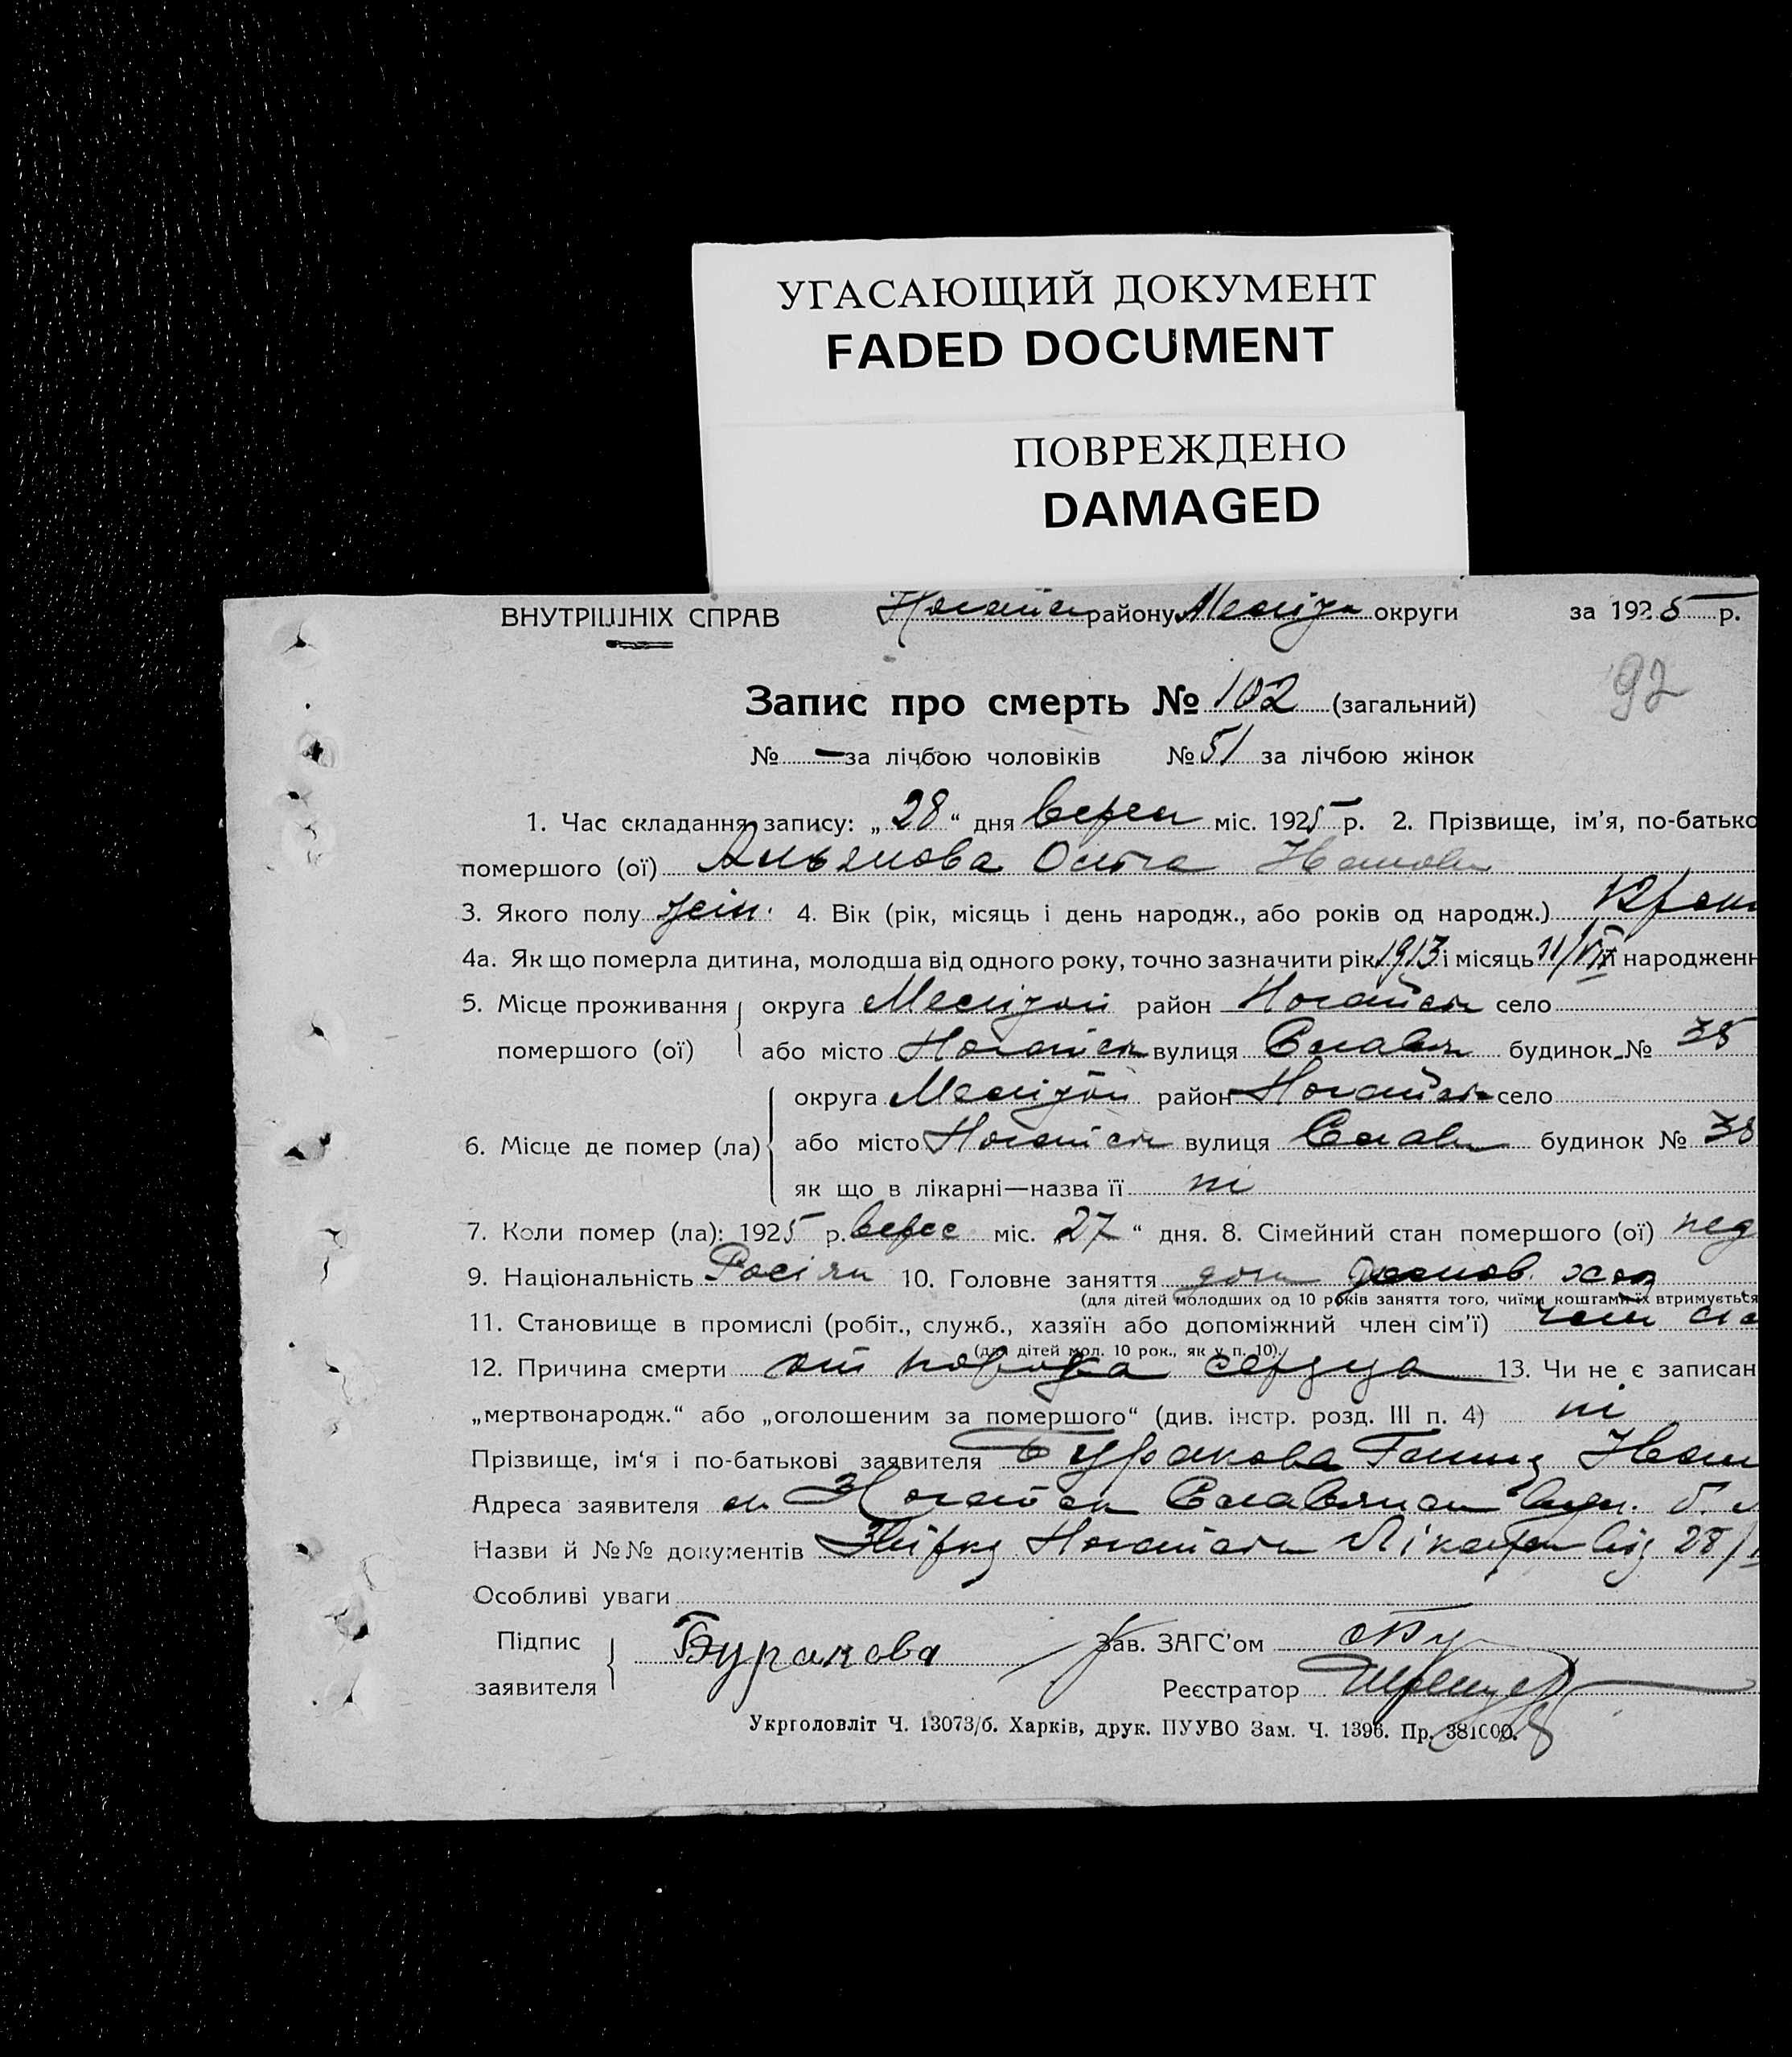 УГАСАЮЩИЙ ДОКУМЕНТ
FADED DOCUMENT
ПОВРЕЖДЕНО
DAMAGED
ВНУТРІШНІХ СПРАВ Ногайськ району Меліт округи за 1925 р.
92
Запис про смерть № 102 (загальний)
№ — за лічбою чоловіків № 51 за лічбою жінок
1. Час складання запису: „28“ дня Верес міс. 1925 р. 2. Прізвище, ім’я, по-батько
помершого (ої) Ольга Іванов
3. Якого полу жін. 4. Вік (рік, місяць і день народж., або років од народж.) 12 рок
4а. Як що померла дитина, молодша від одного року, точно зазначити рік 1913 і місяць 11/VII народженн
5. Місце проживання округа Меліто район Ногайськ село
помершого (ої) або місто Ногайськ вулиця Славян будинок № 38
округа Меліто район Ногайськ село
6. Місце де помер (ла) або місто Ногайськ вулиця Славян будинок № 38
як що в лікарні—назва її ні
7. Коли помер (ла): 1925 р. верес міс. „27“ дня. 8. Сімейний стан помершого (ої)
9. Національність Росіян 10. Головне заняття дом хоз
(для дітей молодших од 10 років заняття того, чиїми коштами їх втримується
11. Становище в промислі (робіт., служб., хазяїн або допоміжний член сім’ї) член сі
(для дітей мол. 10 рок., як у п. 10).
12. Причина смерти от порока сердца 13. Чи не є записан
„мертвонародж.“ або „оголошеним за помершого“ (див. інстр. розд. III п. 4) ні
Прізвище, ім‘я і по-батькові заявителя Буракова Ганна Іван
Адреса заявителя м. Ногайськ Славянська вул.
Назви й №№ документів Ногайськ Лікарн від 28/
Особливі уваги
Підпис Буракова Зав. ЗАГС’ом
заявителя Реєстратор
Укрголовліт Ч. 13073/б. Харків, друк. ПУУВО Зам. Ч. 1396. Пр. 381000.